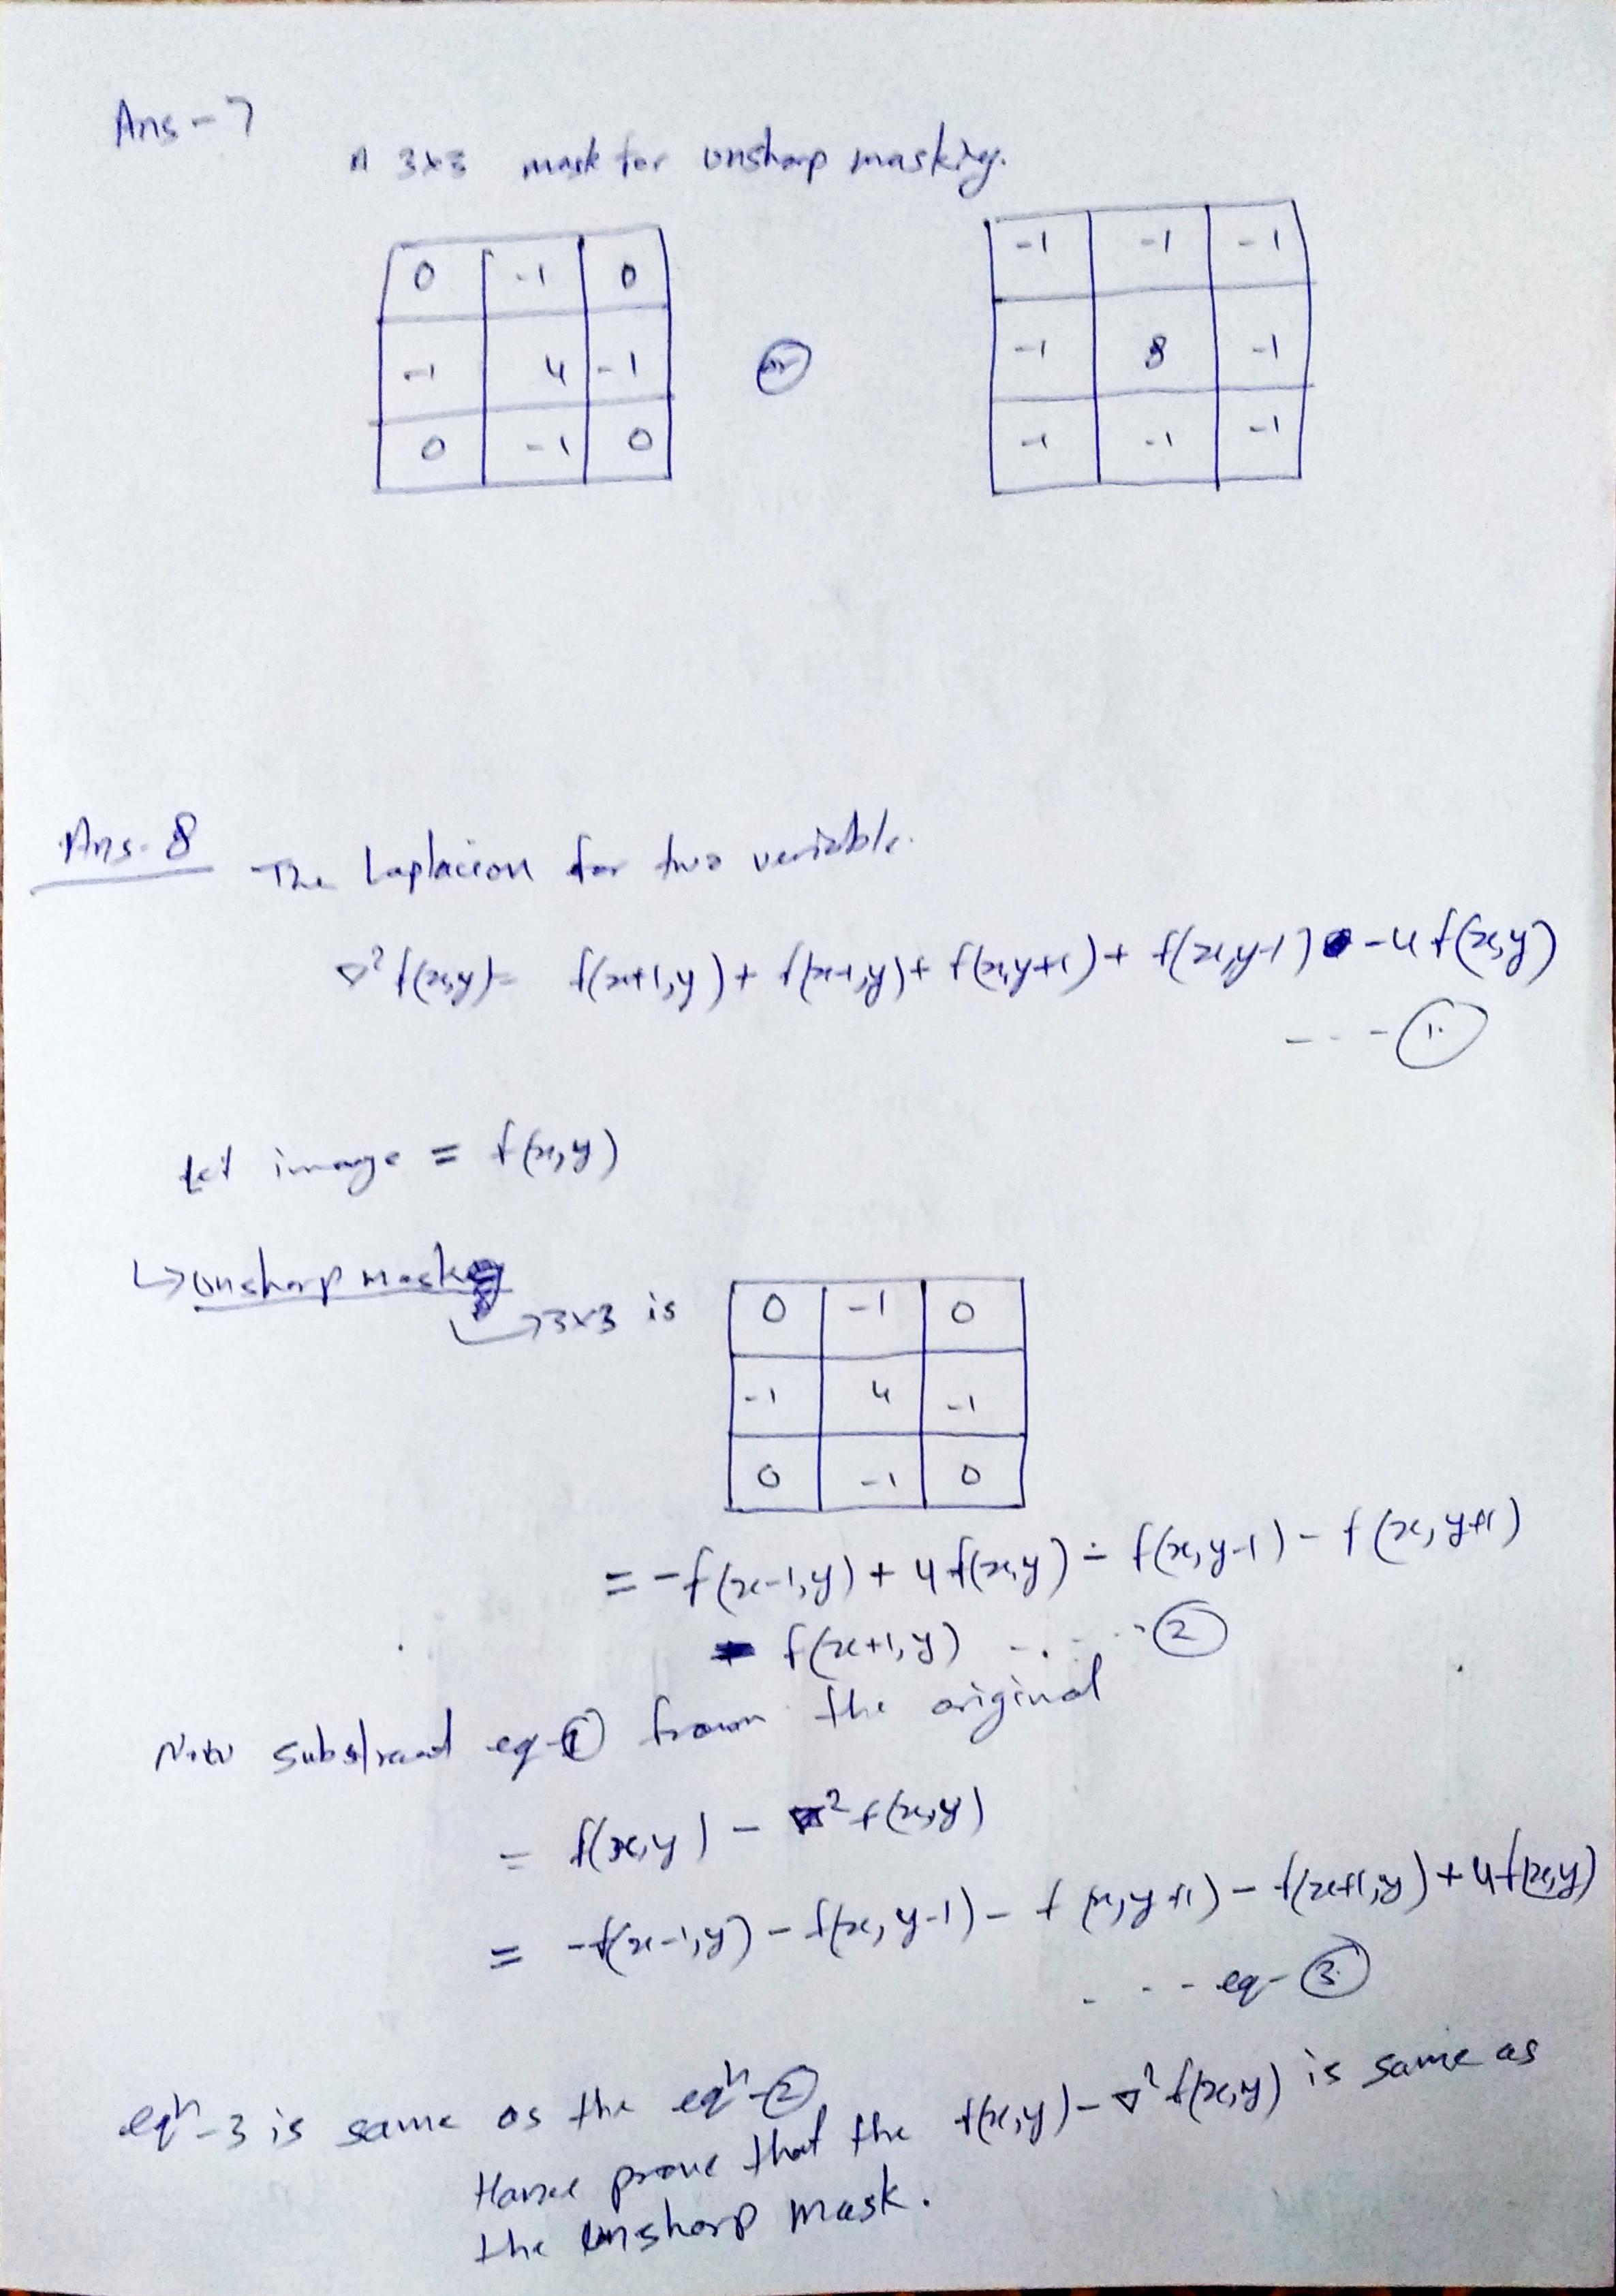 Ans-7
A 3x3 mask for unsharp masking.
0 -1 0
-1 4 -1
0 -1 0
or
-1 -1 -1
-1 8 -1
-1 -1 -1
Ans-8 The Laplacian for two variable.
∇²f(x,y) = f(x+1,y) + f(x-1,y) + f(x,y+1) + f(x,y-1) -4f(x,y)
--- ①
Let image = f(x,y)
↳ unsharp mask
↳ 3x3 is
0 -1 0
-1 4 -1
0 -1 0
= -f(x-1,y) + 4f(x,y) - f(x,y-1) - f(x,y+1)
- f(x+1,y) ---- ②
Now substract eq-① from the original
= f(x,y) - ∇²f(x,y)
= -f(x-1,y) - f(x,y-1) - f(x,y+1) - f(x+1,y) + 4f(x,y)
--- eq-③
eqⁿ-3 is same as the eqⁿ-②
Hance prove that the f(x,y) - ∇²f(x,y) is same as
the unsharp mask.